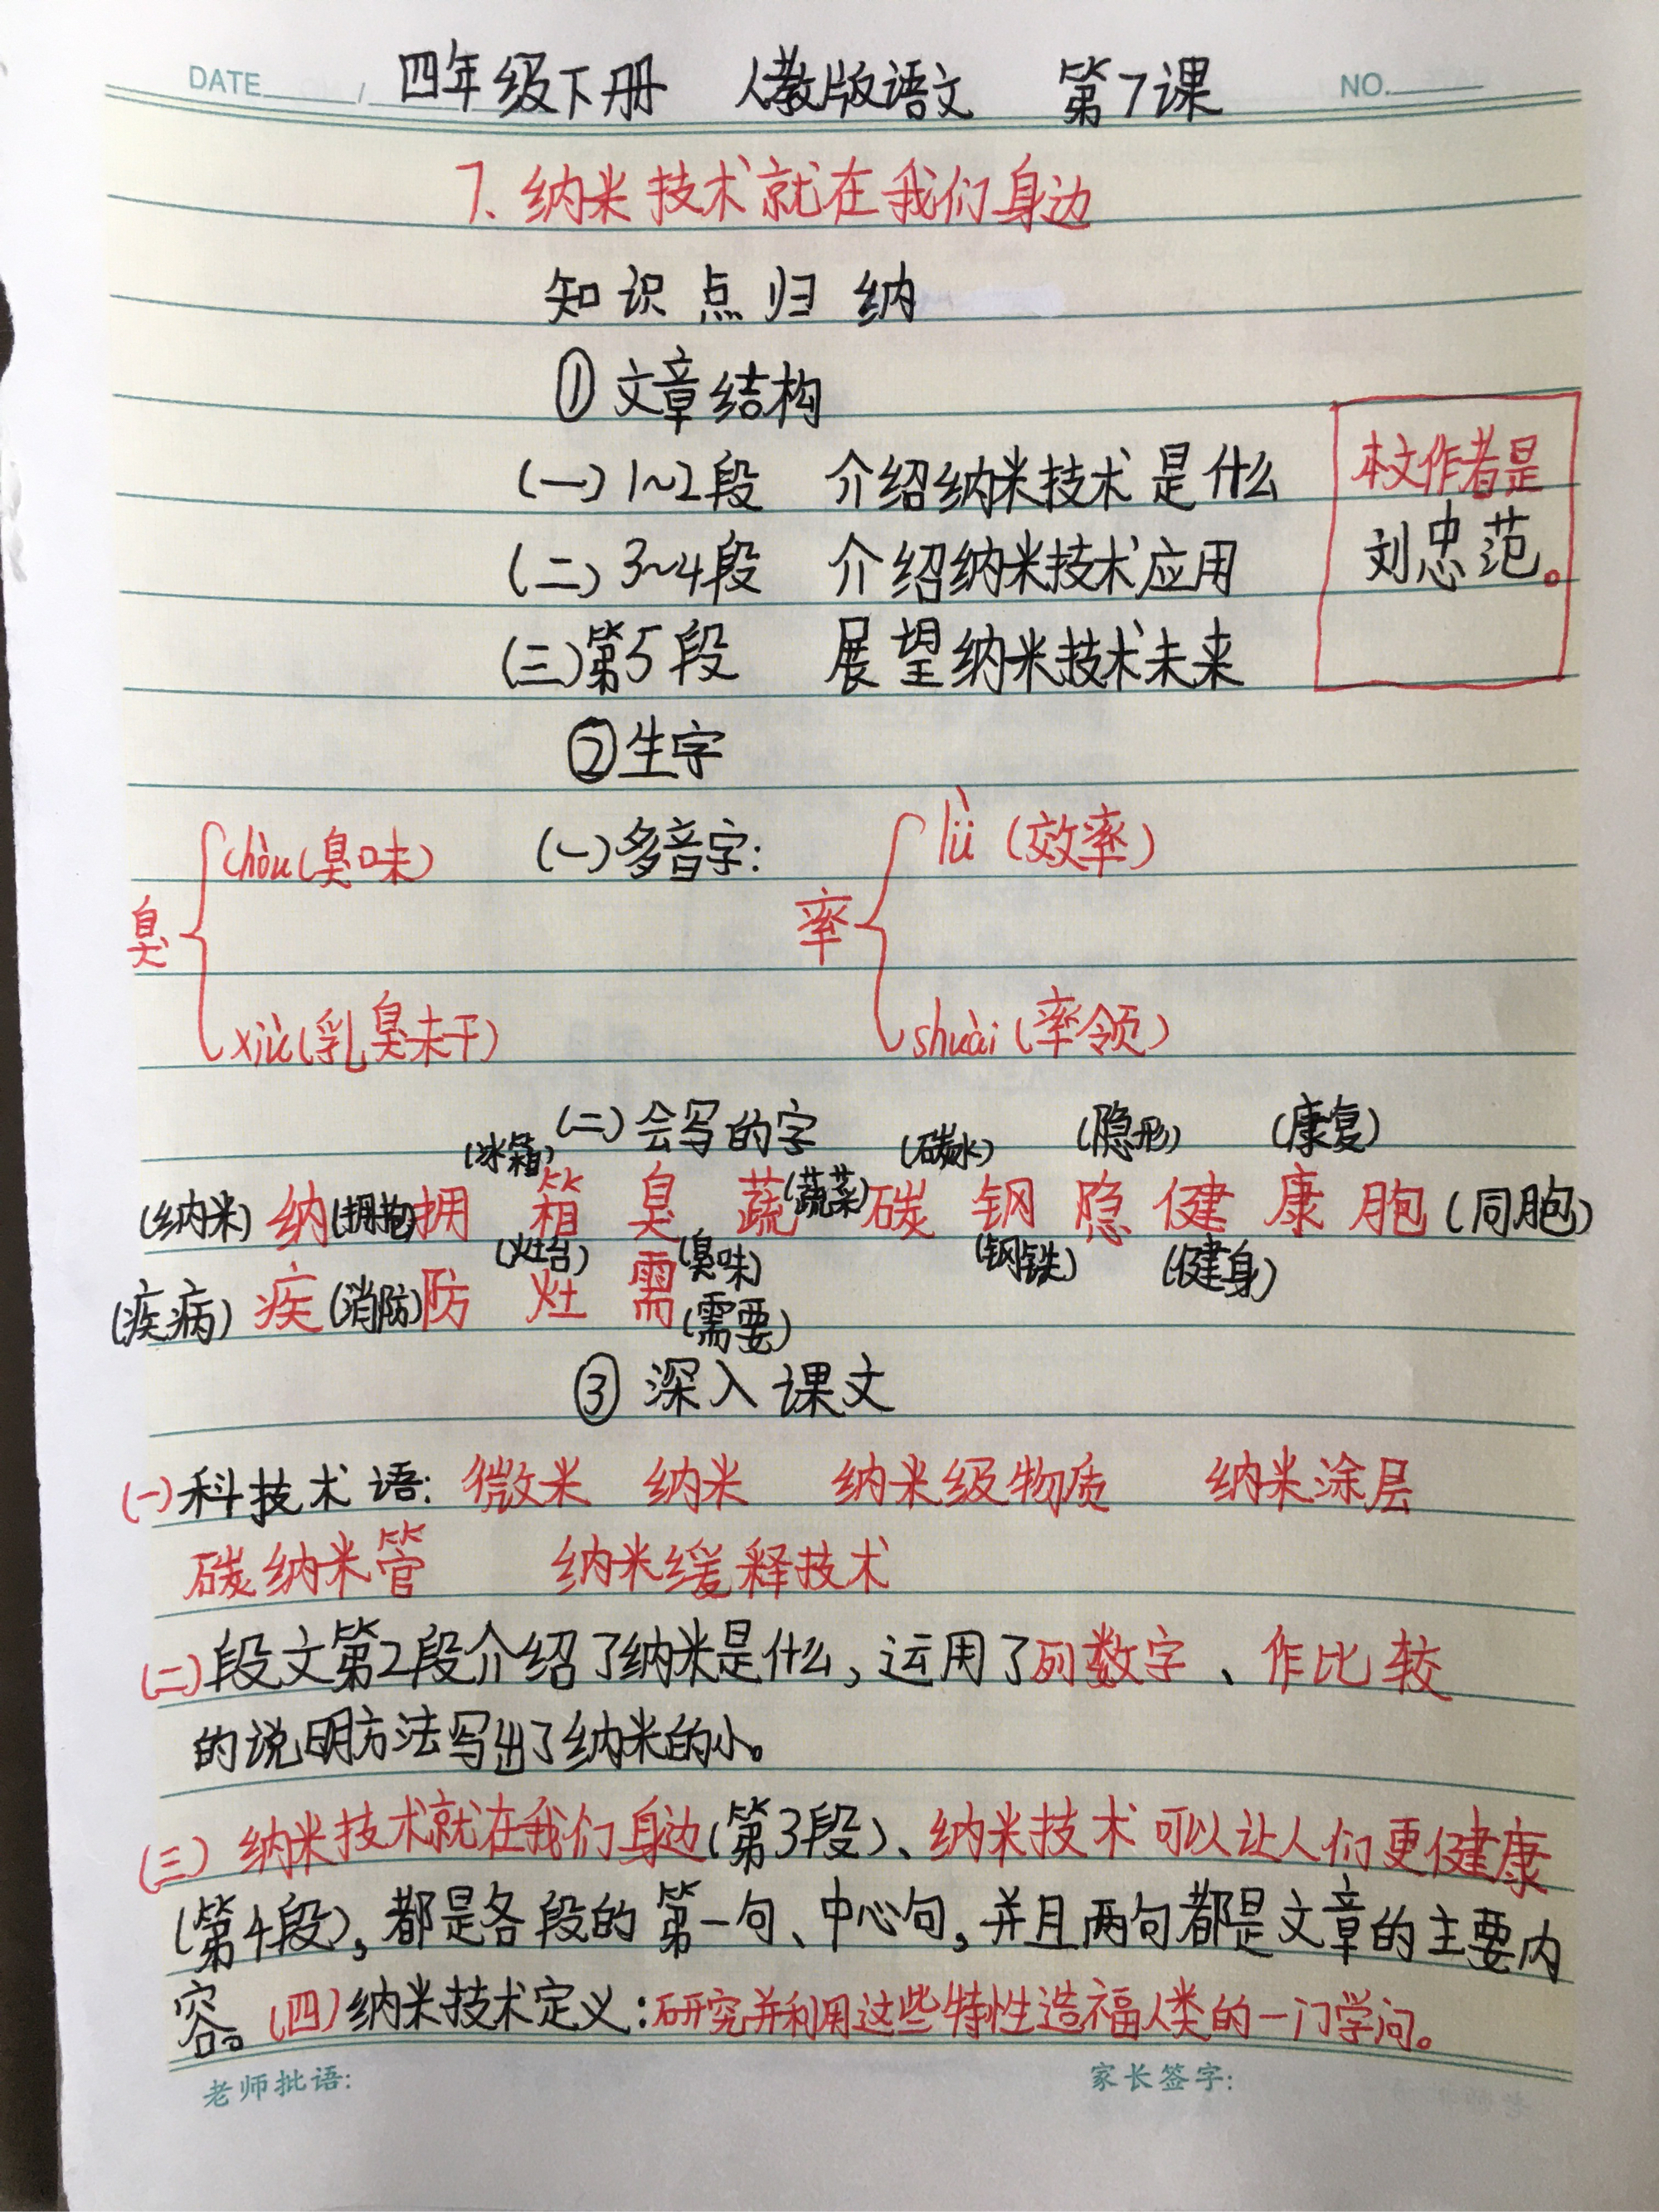 DATE____/ 四年级下册 人教版语文 第7课 NO.____
7.纳米技术就在我们身边
知识点归纳
①文章结构
(一)1~2段 介绍纳米技术是什么
本文作者是
刘忠范。
(二)3~4段 介绍纳米技术应用
(三)第5段 展望纳米技术未来
②生字
(一)多音字:
臭 chòu(臭味)
xiù(乳臭未干)
率 lǜ(效率)
shuài(率领)
(二)会写的字
(冰箱) (碳水) (隐形) (康复)
(纳米)纳(拥抱)拥 箱 臭 蔬(蔬菜)碳 钢 隐 健 康 胞(同胞)
(灶台) (臭味) (钢铁) (健身)
(疾病)疾(消防)防 灶 需(需要)
③深入课文
(一)科技术语:微米 纳米 纳米级物质 纳米涂层
碳纳米管 纳米缓释技术
(二)段文第2段介绍了纳米是什么,运用了列数字、作比较
的说明方法写出了纳米的小。
(三)纳米技术就在我们身边(第3段)、纳米技术可以让人们更健康
(第4段),都是各段的第一句、中心句,并且两句都是文章的主要内
容。(四)纳米技术定义:研究并利用这些特性造福人类的一门学问。
老师批语: 家长签字: